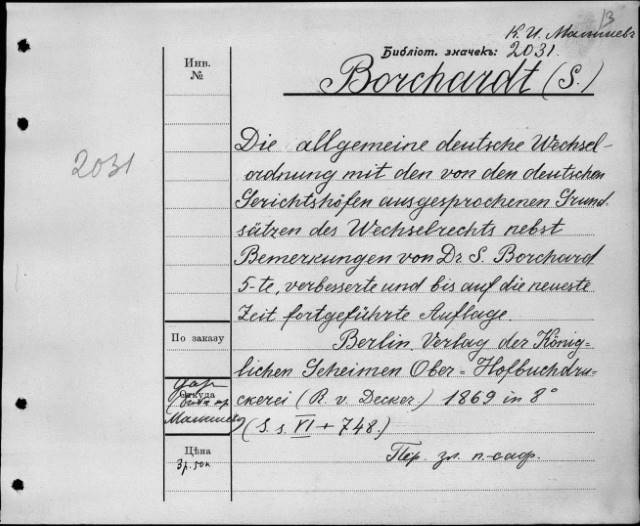 К. И. Малышев
Библіот. значекъ: 2031.
Borchardt (S.)
Инв.
№
2031
Die allgemeine deutsche Wechsel-
ordnung mit den von den deutschen
Gerichtshöfen ausgesprochenen Grund
sätzen des Wechselrechts nebst
Bemerkungen von Dr S. Borchard
5-te, verbesserte und bis auf die neueste
Zeit fortgeführte Auflage.
По заказу
Berlin. Verlag der König-
lichen Geheimen Ober-Hofbuchdru-
Откуда
дар
ckerei (R. v. Decker.) 1869 in 8°
(S. s. VI + 748.)
Цѣна
3 р.
Пер.